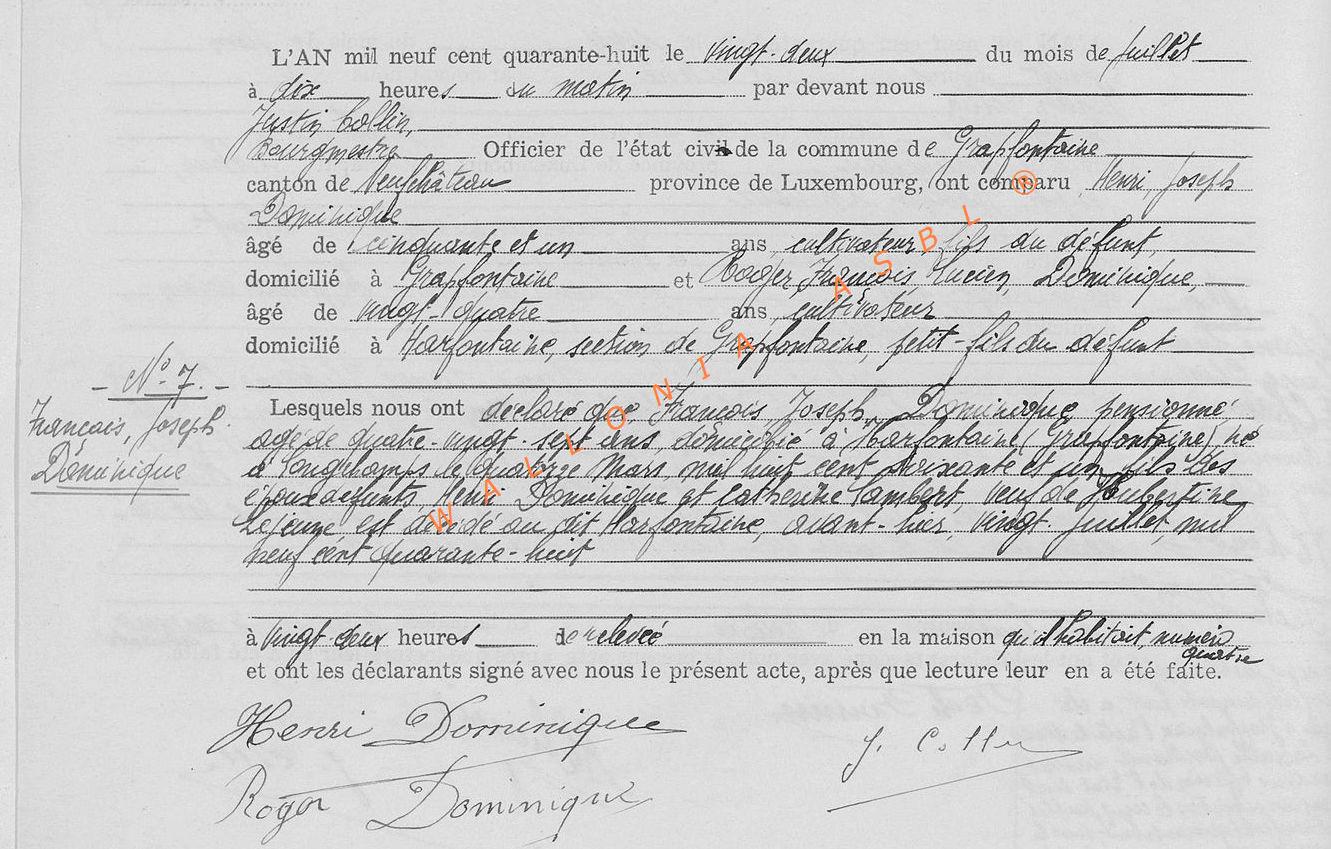 L'AN mil neuf cent quarante-huit le vingt-deux du mois de juillet
à dix heures du matin par devant nous
Justin Collin,
Bourgmestre Officier de l'état civil de la commune de Grapfontaine
canton de Neufchâteau province de Luxembourg, ont comparu Henri, Joseph
Dominique
âgé de cinquante et un ans, cultivateur, fils du défunt,
domicilié à Grapfontaine et Roger, François, Lucien, Dominique,
âgé de vingt-quatre ans, cultivateur
domicilié à Harfontaine, section de Grapfontaine, petit-fils du défunt
- No 7. -
François, Joseph
Dominique
Lesquels nous ont déclaré que, François, Joseph, Dominique, pensionné
agé de quatre-vingt-sept ans, domicilié à Harfontaine (Grapfontaine) né
à Longchamps le quatorze Mars, mil huit cent soixante et un, fils des
époux défunts, Henri Dominique et Catherine Lambert, veuf de Hubertine
Lejeune, est décédé au dit Harfontaine, avant-hier, vingt juillet, mil
neuf cent quarante-huit
à vingt-deux heures de relevée en la maison qu'il habitait, numéro
quatre
et ont les déclarants signé avec nous le présent acte, après que lecture leur en a été faite.
Henri Dominique
J. Collin
Roger Dominique
WALLONIA ASBL ®